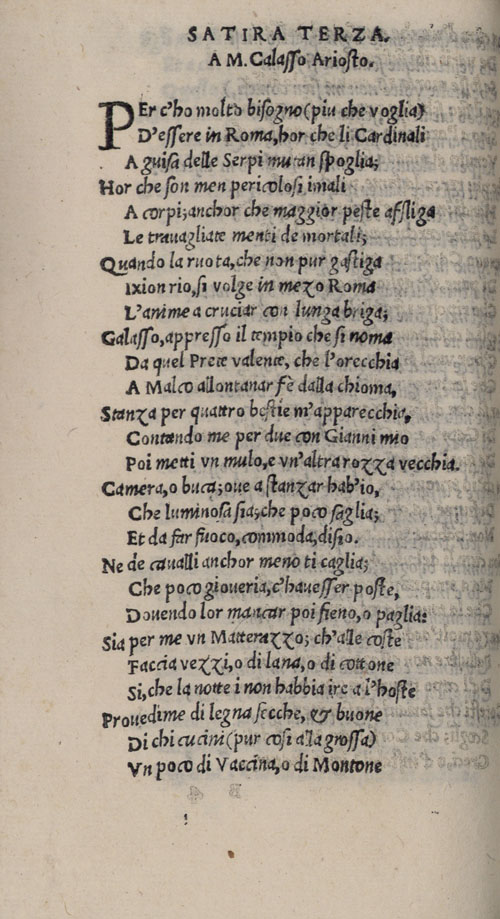 SATIRA TERZA.
A M. Galasso Ariosto.
PEr c'ho molto bisogno (piu che voglia)
D'essere in Roma, hor che li Cardinali
A guisa delle Serpi mutan spoglia;
Hor che son men pericolosi i mali
A corpi; anchor che maggior peste affliga
Le trauagliate menti de mortali;
Quando la ruota, che non pur gastiga
Ixion rio, si volge in mezo Roma
L'anime a cruciar con lunga briga;
Galasso, appresso il tempio che si noma
Da quel Prete valente, che l'orecchia
A Malco allontanar fe dalla chioma,
Stanza per quattro bestie m'apparecchia,
Contando me per due con Gianni mio
Poi metti vn mulo, e vn'altra rozza vecchia.
Camera, o buca; oue a stanzar hab'io,
Che luminosa sia; che poco saglia;
Et da far fuoco, commoda, disio.
Ne de caualli anchor meno ti caglia;
Che poco gioueria, c'hauesser poste,
Douendo lor mancar poi fieno, o paglia:
Sia per me vn Matterazzo; ch'alle coste
Faccia vezzi, o di lana, o di cottone
Si, che la notte i non habbia ire a l'hoste
Prouedime di legna secche, & buone
Di chi cucini (pur cosi a la grossa)
Vn poco di Vaccina, o di Montone